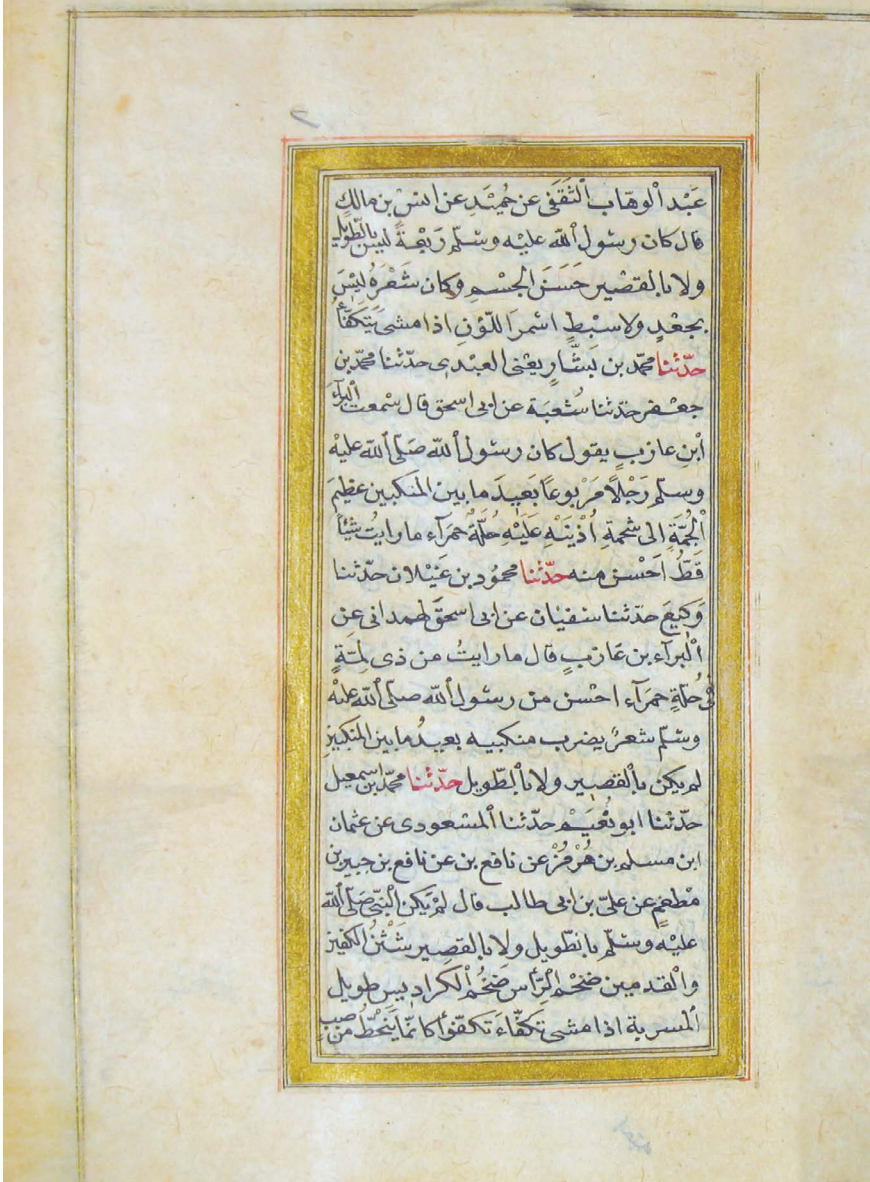 عَبْد ٱلوهّاب ٱلثَقَفى عن حُمَيْدٍ عن انس بن مالكٍ
قال كان رسول ٱللّه عليْه وسَلّم رَبْعَةً ليس بالطّويل
ولا بالقصْير حَسَنَ الجسْمِ وكان شَعْرَهُ ليْسَ
بجعْدٍ ولا سبْطٍ اسْمرَ اللّوْنِ اذا مشى يَتَكَفَّأُ
حدّثنا محمّد بن بَشّارٍ يعْنى العبْدى حدّثنا محمّد بن
جعْفر حدّثنا شُعْبَة عن ابى اسحق قال سمْعت ٱلبرآء
ابْنِ عازبٍ يقول كان رسول ٱللّه صَلّى ٱللّه عليْه
وسلّم رَجْلًا مَرْبوعًا بَعيدَ ما بين المنكبين عظيمَ
ٱلْجُمَّةِ الى شحْمةِ اُذْنيَهْ عَلَيْهِ حُلّةٌ حمرَآء ما رايتُ شيْأ
قَطُّ اَحْسن منه حدّثنا محمُود بن غَيْلان حدّثنا
وَكيعَ حدّثنا سفيان عن ابى اسحقَ لهمدانى عن
ٱلْبرآء بن عَازبٍ قال ما رايتُ من ذى لِمّةٍ
فى حُلّةٍ حمرَآء احْسن من رسول ٱللّه صلّى ٱللّه عليْه
وسَلّم شعرٌ يضرب منكبيه بعيدُ ما بين المنكبينِ
لم يكن بٱلقصير ولا بٱلطّويل حدّثنا محمّد بن اسمعيل
حدّثنا ابو نُعَيْم حدّثنا ٱلمسْعودى عن عثمان
ابن مسلم بن هُرْمُزْ عن نافع بن عن نافع بن جبير بن
مُطْعمٍ عن علىّ بن ابى طالب قال لمْ يَكن ٱلنبّى صَلّى ٱللّه
عليْه وسلّم بٱلطّويل ولا بالقصِير شَثْنُ الكفّين
والْقدمين ضَخْم ٱلرّأس ضَخُم ٱلكراديس طويل
ٱلمسربة اذا مشى تَكفّاءَ تكفّؤًا كانّما يَنْحَطُّ من صبب